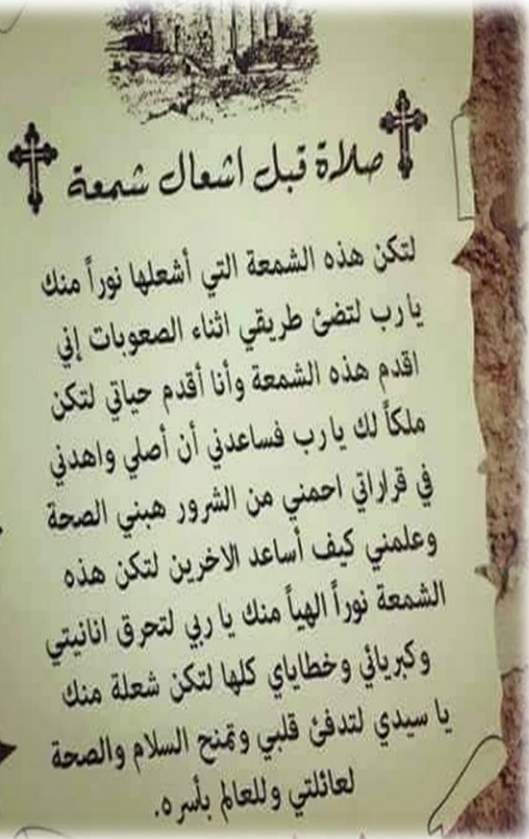 صلاة قبل اشعال شمعة
لتكن هذه الشمعة التي أشعلها نوراً منك
يا رب لتضئ طريقي اثناء الصعوبات إني
اقدم هذه الشمعة وأنا أقدم حياتي لتكن
ملكاً لك يا رب فساعدني أن أصلي واهدني
في قراراتي احمني من الشرور هبني الصحة
وعلمني كيف أساعد الاخرين لتكن هذه
الشمعة نوراً الهياً منك يا ربي لتحرق انانيتي
وكبريائي وخطاياي كلها لتكن شعلة منك
يا سيدي لتدفئ قلبي وتمنح السلام والصحة
لعائلتي وللعالم بأسره.